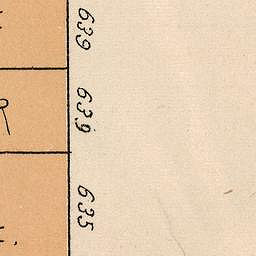 639
639
635